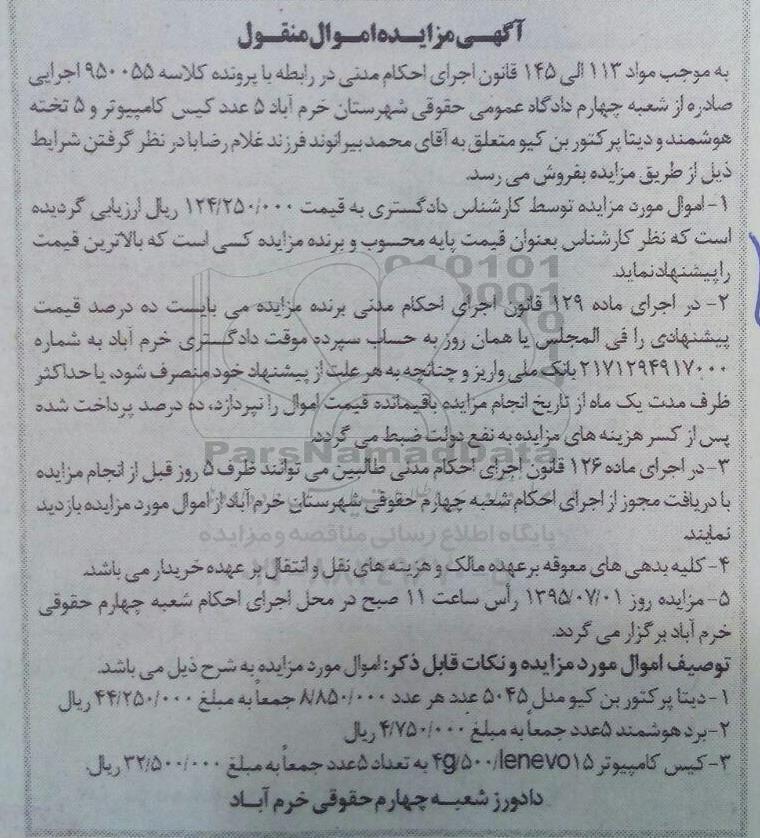 آگهی مزایده اموال منقول
به موجب مواد ۱۱۳ الی ۱۴۵ قانون اجرای احکام مدنی در رابطه با پرونده کلاسه ۹۵۰۰۵۵ اجرایی
صادره از شعبه چهارم دادگاه عمومی حقوقی شهرستان خرم آباد ۵ عدد کیس کامپیوتر و ۵ تخته
هوشمند و دیتا پرکتور بن کیو متعلق به آقای محمد بیرانوند فرزند غلام رضا با در نظر گرفتن شرایط
ذیل از طریق مزایده بفروش می رسد.
۱- اموال مورد مزایده توسط کارشناس دادگستری به قیمت ۱۲۴/۲۵۰/۰۰۰ ریال ارزیابی گردیده
است که نظر کارشناس بعنوان قیمت پایه محسوب و برنده مزایده کسی است که بالاترین قیمت
را پیشنهاد نماید.
۲- در اجرای ماده ۱۲۹ قانون اجرای احکام مدنی برنده مزایده می بایست ده درصد قیمت
پیشنهادی را فی المجلس یا همان روز به حساب سپرده موقت دادگستری خرم آباد به شماره
۲۱۷۱۲۹۴۹۱۷۰۰۰ بانک ملی واریز و چنانچه به هر علت از پیشنهاد خود منصرف شود، یا حداکثر
ظرف مدت یک ماه از تاریخ انجام مزایده باقیمانده قیمت اموال را نپردازد، ده درصد پرداخت شده
پس از کسر هزینه های مزایده به نفع دولت ضبط می گردد.
ParsNamadData
۳- در اجرای ماده ۱۲۶ قانون اجرای احکام مدنی طالبین می توانند ظرف ۵ روز قبل از انجام مزایده
با دریافت مجوز از اجرای احکام شعبه چهارم حقوقی شهرستان خرم آباد از اموال مورد مزایده بازدید
نمایند.
پایگاه اطلاع رسانی مناقصه و مزایده
۴- کلیه بدهی های معوقه بر عهده مالک و هزینه های نقل و انتقال بر عهده خریدار می باشد.
۵- مزایده روز ۱۳۹۵/۰۷/۰۱ رأس ساعت ۱۱ صبح در محل اجرای احکام شعبه چهارم حقوقی
خرم آباد برگزار می گردد.
توصیف اموال مورد مزایده و نکات قابل ذکر: اموال مورد مزایده به شرح ذیل می باشد.
۱- دیتا پرکتور بن کیو مدل ۵۰۴۵ عدد هر عدد ۸/۸۵۰/۰۰۰ جمعاً به مبلغ ۴۴/۲۵۰/۰۰۰ ریال
۲- برد هوشمند ۵عدد جمعاً به مبلغ ۴/۷۵۰/۰۰۰ ریال
۳- کیس کامپیوتر ۴g/۵۰۰/lenevo۱۵ به تعداد ۵عدد جمعاً به مبلغ ۳۲/۵۰۰/۰۰۰ ریال.
دادورز شعبه چهارم حقوقی خرم آباد